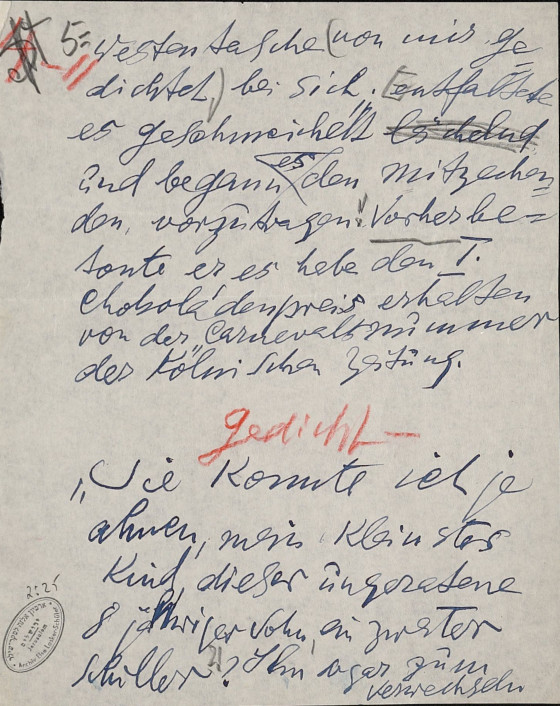 5=
Westentasche (von mir ge
dichtet) bei sich, entfaltete
es geschmeichelt lächelnd
und begann es den mitzechen
den, vorzutragen. Vorher be=
tonte er es habe den I.
Chokoládenpreis erhalten
von der „Carnevalsnummer
der Kölnischen Zeitung.
Gedicht —
„Wie konnte ich je
ahnen, mein kleinstes
Kind, dieser ungeratene
8 jähriger Sohn, ein zweiter
Schiller? Ihn sogar zum
verwechseln
2:25
Jerusalem